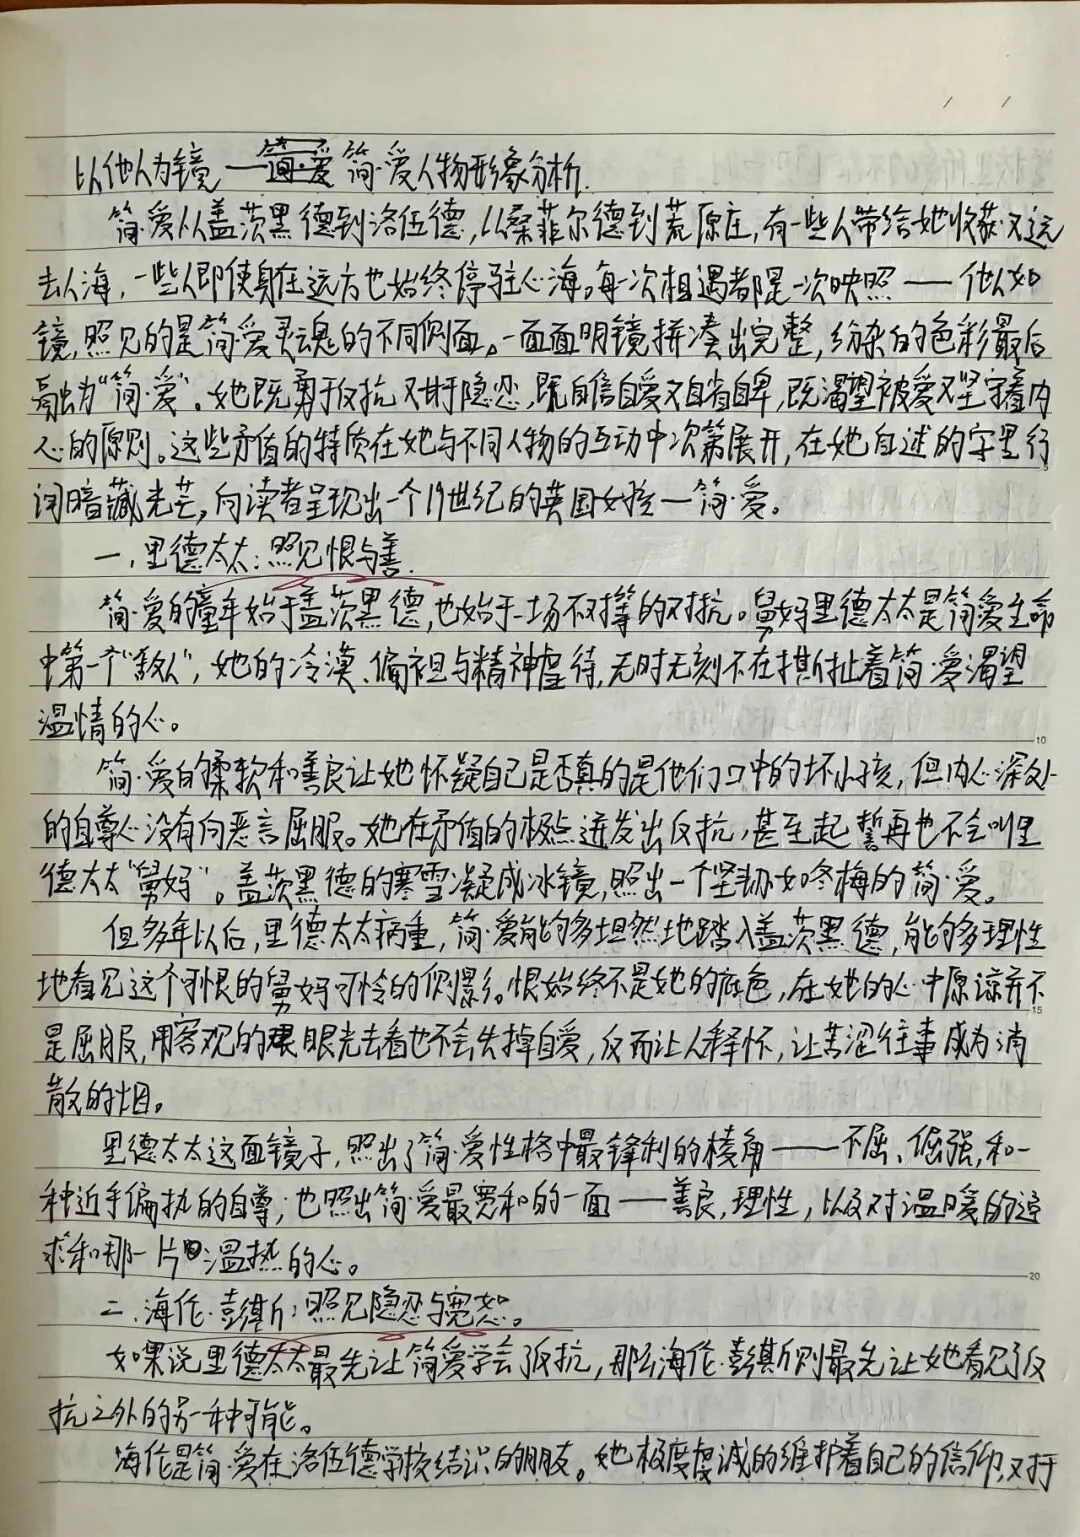 以他人为镜——简·爱人物形象分析.
简·爱从盖茨黑德到洛伍德,从桑菲尔德到荒原庄,有一些人带给她收获又远
去人海,一些人即使身在远方也始终停驻心海。每一次相遇都是一次映照——他人如
镜,照见的是简·爱灵魂的不同侧面。一面面明镜拼凑出完整,纷杂的色彩最后
融为“简·爱”。她既勇于反抗又甘于隐忍,既自信自爱又自省自卑,既渴望被爱又坚守着内
心的原则。这些矛盾的特质在她与不同人物的互动中次第展开,在她自述的字里行
间暗藏光芒,向读者呈现出一个19世纪的英国女孩—简·爱。
一.里德太太:照见恨与善.
简·爱的童年始于盖茨黑德,也始于一场不对等的对抗。舅妈里德太太是简爱生命
中第一个“敌人”,她的冷漠、偏袒与精神虐待,无时无刻不在撕扯着简·爱渴望
温情的心。
简·爱的柔软和善良让她怀疑自己是否真的是他们口中的坏小孩,但内心深处
的自尊心没有向恶言屈服。她在矛盾的极点迸发出反抗,甚至起誓再也不会叫里
德太太“舅妈”。盖茨黑德的寒雪凝成冰镜,照出一个坚韧如冬梅的简·爱。
但多年以后,里德太太病重,简·爱能够坦然地踏入盖茨黑德,能够理性
地看见这个可恨的舅妈可怜的侧影。恨始终不是她的底色,在她的心中原谅并不
是屈服,用客观的眼光去看也不会失掉自爱,反而让人释怀,让苦涩往事成为消
散的烟。
里德太太这面镜子,照出了简·爱性格中最锋利的棱角——不屈、倔强,和一
种近乎偏执的自尊;也照出简·爱最宽和的一面——善良,理性,以及对温暖的追
求和那一片温热的心。
二.海伦·彭斯:照见隐忍与宽恕。
如果说里德太太最先让简爱学会了反抗,那么海伦·彭斯则最先让她看见了反
抗之外的另一种可能。
海伦是简·爱在洛伍德学校结识的朋友。她极度虔诚的维护着自己的信仰,对于